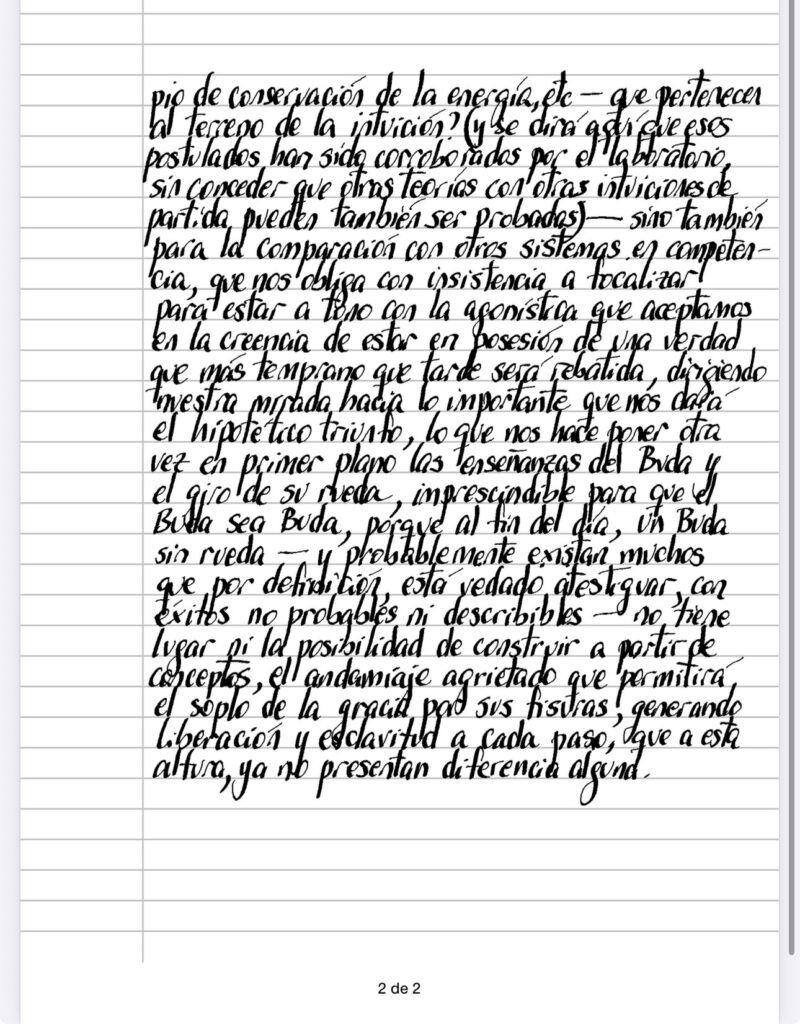 pio de conservación de la energía, etc — que pertenecen
al terreno de la intuición? (y se dirá aquí que esos
postulados han sido corroborados por el laboratorio,
sin conceder que otras teorías con otras intuiciones de
partida pueden también ser probadas) — sino también
para la comparación con otros sistemas en competen-
cia, que nos obliga con insistencia a focalizar
para estar a tono con la agonística que aceptamos
en la creencia de estar en posesión de una verdad
que más temprano que tarde será rebatida, dirigiendo
nuestra mirada hacia lo importante que nos dará
el hipotético triunfo, lo que nos hace poner otra
vez en primer plano las enseñanzas del Buda y
el giro de su rueda, imprescindible para que el
Buda sea Buda, porque al fin del día, un Buda
sin rueda — y probablemente existan muchos
que por definición, está vedado atestiguar, con
éxitos no probables ni describibles — no tiene
lugar ni la posibilidad de construir a partir de
conceptos, el andamiaje agrietado que permitirá,
el soplo de la gracia por sus fisuras, generando
liberación y esclavitud a cada paso, que a esta
altura, ya no presentan diferencia alguna.
2 de 2